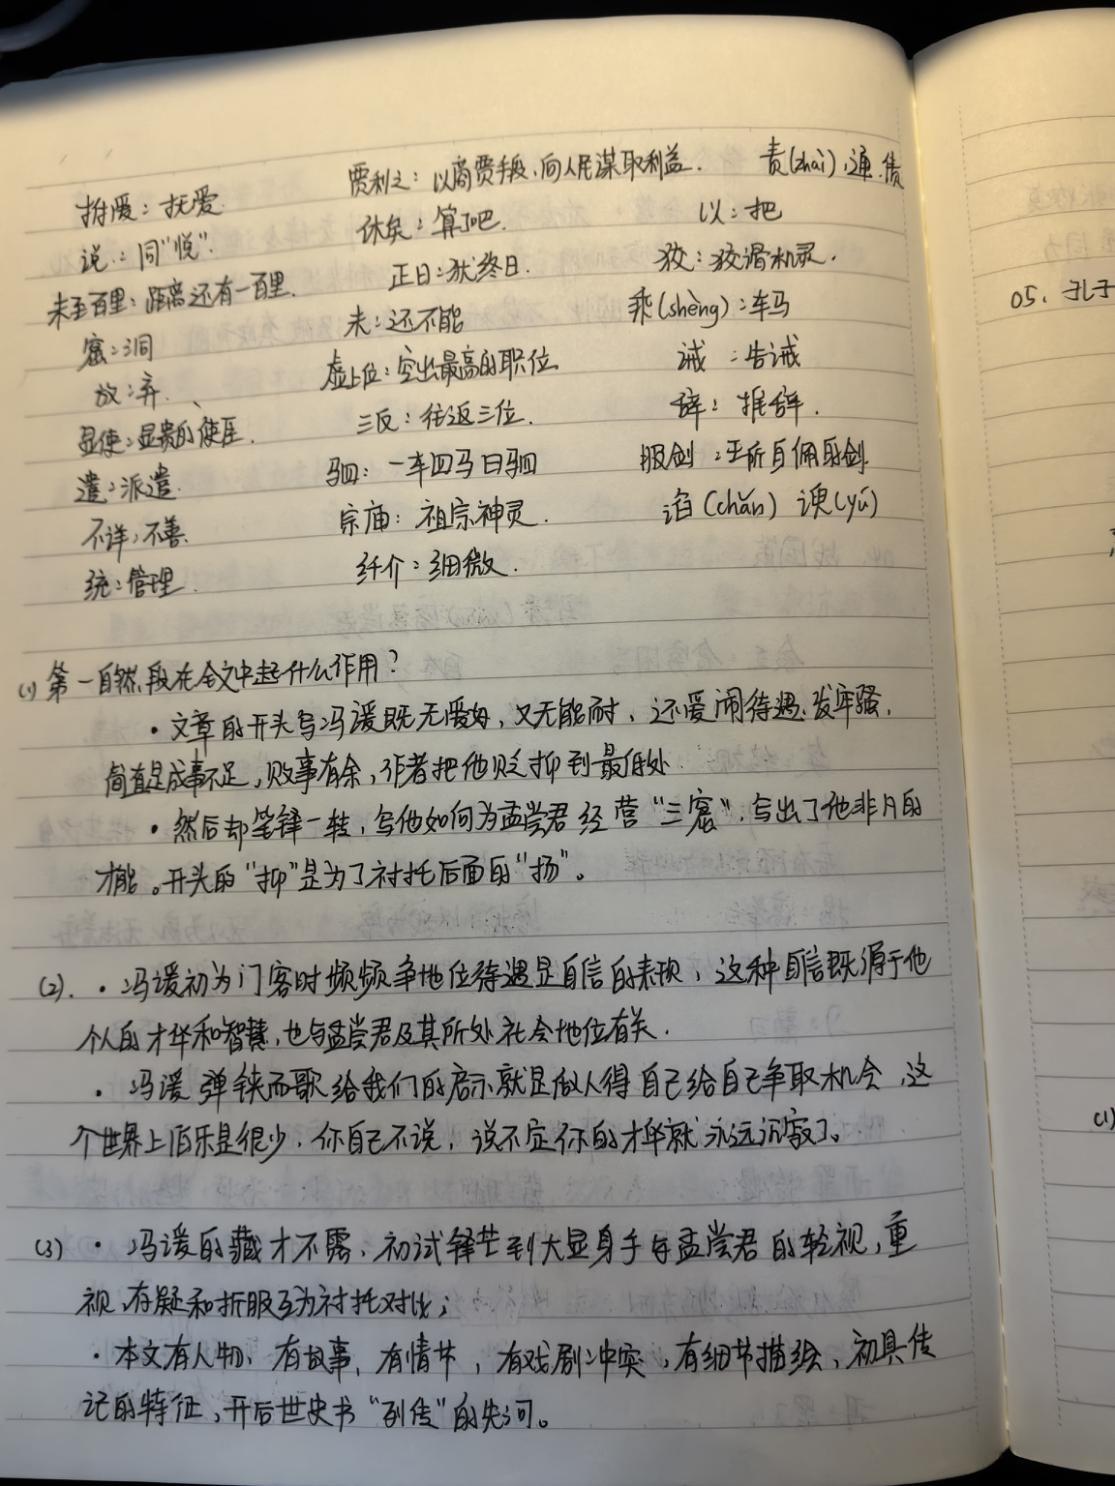 拊爱：抚爱
贾利之：以商贾手段，向人民谋取利益.
责(zhài)，通.债
说：同“悦”.
休矣：算了吧.
以：把
未至百里：距离还有一百里.
正日：犹终日.
狡：狡滑机灵.
窟：洞
未：还不能
乘(shèng)：车马
放：弃.
虚上位：空出最高的职位.
诫：告诫
显使：显贵的使臣.
三反：往返三位.
辞：推辞.
遣：派遣.
驷：一车四马曰驷
服剑：王所自佩的剑.
不详：不善.
宗庙：祖宗神灵.
谄(chǎn) 谀(yú)
统：管理.
纤介：细微.
05、孔子
(1) 第一自然段在全文中起什么作用？
·文章的开头写冯谖既无爱好，又无能耐，还爱闹待遇、发牢骚，
简直是成事不足，败事有余，作者把他贬抑到最低处.
·然后却笔锋一转，写他如何为孟尝君经营“三窟”，写出了他非凡的
才能。开头的“抑”是为了衬托后面的“扬”。
(2). ·冯谖初为门客时频频争地位待遇是自信的表现，这种自信既源于他
个人的才华和智慧，也与孟尝君及其所处社会地位有关.
·冯谖弹铗而歌给我们的启示就是做人得自己给自己争取机会，这
个世界上伯乐是很少，你自己不说，说不定你的才华就永远沉寂了。
(1)
(3) ·冯谖的藏才不露、初试锋芒到大显身手与孟尝君的轻视，重
视、存疑和折服互为衬托对比；
·本文有人物、有故事，有情节，有戏剧冲突，有细节描绘，初具传
记的特征，开后世史书“列传”的先河。